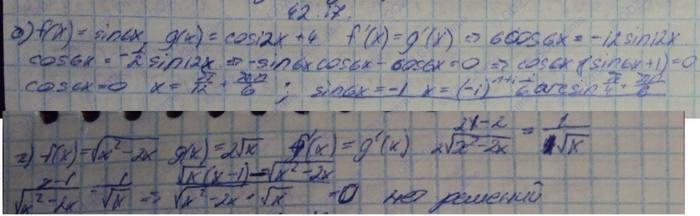 42.17.
в) f(x) = sin6x g(x) = cos12x + 4 f'(x) = g'(x) ⇒ 6cos6x = -12sin12x
cos6x = sin12x ⇒ -sin6x cos6x - cos6x = 0 ⇒ cos6x (sin6x+1) = 0
cos6x = 0 x = π/12 + πn/6 ; sin6x = -1 x = (-1)^n+1 arcsin
г) f(x) = √x²-2x g(x) = 2√x f'(x) = g'(x) 2x-2/2√x²-2x = 1/√x
x-1/√x²-2x = 1/√x ⇒ √x(x-1) - √x²-2x / √x²-2x · √x = 0 нет решений